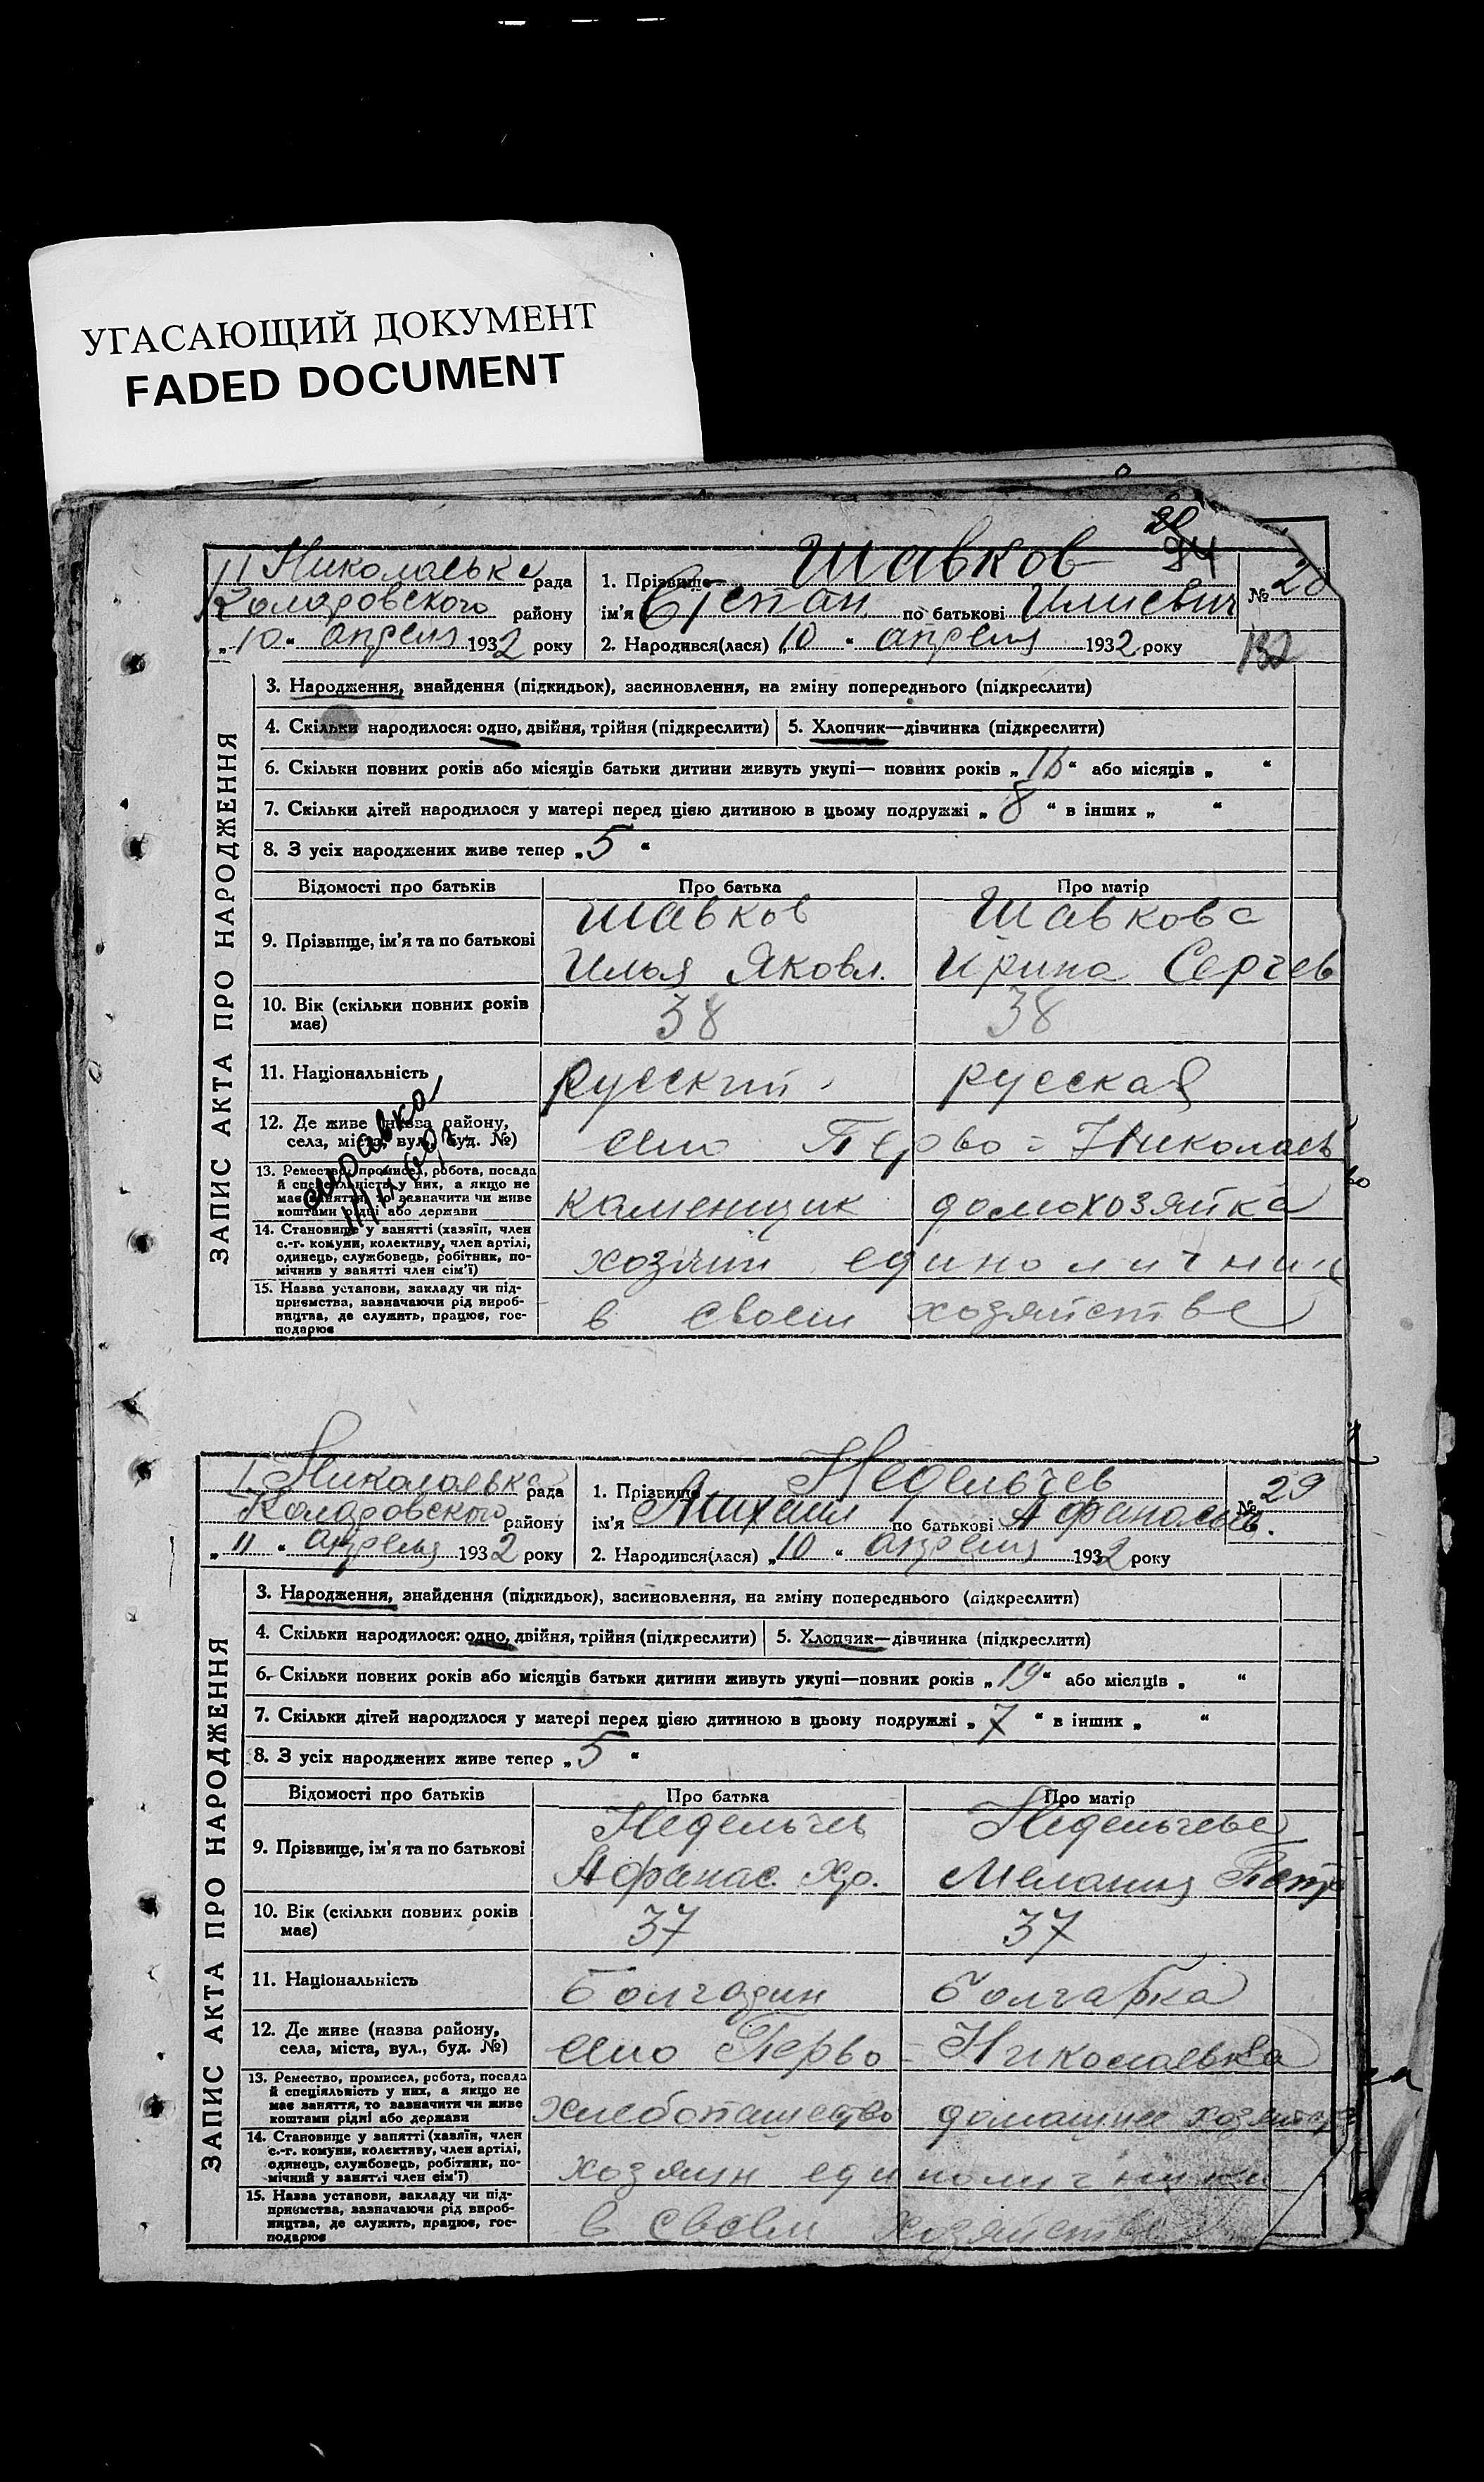 УГАСАЮЩИЙ ДОКУМЕНТ
FADED DOCUMENT
94
Николаевка рада
Коларовского району
„10“ апреля 1932 року
1. Прізвище Шавков
ім'я Степан по батькові Илиевич
2. Народився(лася) „10“ апреля 1932 року
№ 28
132
ЗАПИС АКТА ПРО НАРОДЖЕННЯ
3. Народження, знайдення (підкидьок), засиновлення, на зміну попереднього (підкреслити)
4. Скільки народилося: одно, двійня, трійня (підкреслити) 5. Хлопчик—дівчинка (підкреслити)
6. Скільки повних років або місяців батьки дитини живуть укупі— повних років „16“ або місяців „ “
7. Скільки дітей народилося у матері перед цією дитиною в цьому подружжі „8“ в інших „ “
8. З усіх народжених живе тепер „5“
Відомості про батьків Про батька Про матір
9. Прізвище, ім'я та по батькові
Шавков Шавкова
Илья Яковл. Ирина Сергев
10. Вік (скільки повних років має) 38 38
11. Національність русский русская
12. Де живе (назва району, села, міста, вул., буд. №) село Перво=Николаевка
13. Ремество, промисел, робота, посада й спеціяльність у них, а якщо не має заняття, то зазначити чи живе коштами рідні або держави
каменщик домохозяйка
14. Становище у занятті (хазяїн, член с.-г. комуни, колективу, член артілі, одинець, службовець, робітник, помічник у занятті член сім'ї)
хозяин единоличник
15. Назва установи, закладу чи підприємства, зазначаючи рід виробництва, де служить, працює, господарює
в своем хозяйстве
справка
Николаевка рада
Коларовского району
„11“ апреля 1932 року
1. Прізвище Недельчев
ім'я Михаил по батькові Афанасьев.
2. Народився(лася) „10“ апреля 1932 року
№ 29
ЗАПИС АКТА ПРО НАРОДЖЕННЯ
3. Народження, знайдення (підкидьок), засиновлення, на зміну попереднього (підкреслити)
4. Скільки народилося: одно, двійня, трійня (підкреслити) 5. Хлопчик—дівчинка (підкреслити)
6. Скільки повних років або місяців батьки дитини живуть укупі—повних років „19“ або місяців „ “
7. Скільки дітей народилося у матері перед цією дитиною в цьому подружжі „7“ в інших „ “
8. З усіх народжених живе тепер „5“
Відомості про батьків Про батька Про матір
9. Прізвище, ім'я та по батькові
Недельчев Недельчева
Афанас. Хр. Мелания Петр
10. Вік (скільки повних років має) 37 37
11. Національність Болгарин болгарка
12. Де живе (назва району, села, міста, вул., буд. №) село Перво-Николаевка
13. Ремество, промисел, робота, посада й спеціяльність у них, а якщо не має заняття, то зазначити чи живе коштами рідні або держави
хлебопашество домашнее хозяйство
14. Становище у занятті (хазяїн, член с.-г. комуни, колективу, член артілі, одинець, службовець, робітник, помічний у занятті член сім'ї)
хозяин единоличники
15. Назва установи, закладу чи підприємства, зазначаючи рід виробництва, де служить, працює, господарює
в своем хозяйстве